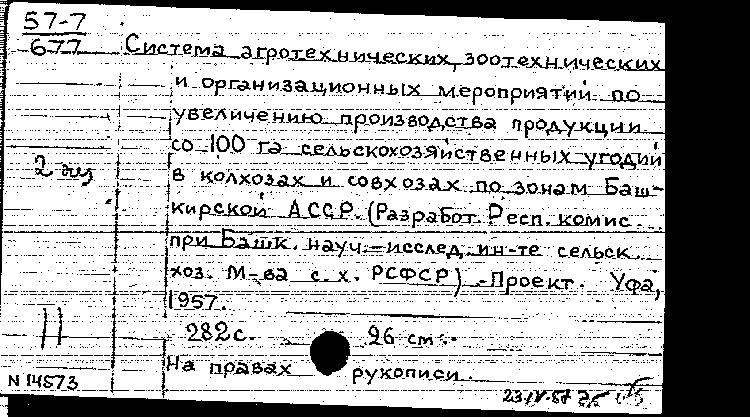 57-7
677
Система агротехнических, зоотехнических
и организационных мероприятий по
увеличению производства продукции
со 100 га сельскохозяйственных угодий
2 экз
в колхозах и совхозах по зонам Баш-
кирской АССР. (Разработ. Респ. комис.
при Башк. науч.-исслед. ин-те сельск.
хоз. М-ва с.х. РСФСР) -Проект. Уфа,
1957.
11
282с. 26 см.
На правах рукописи.
N 14573
23.IV-57